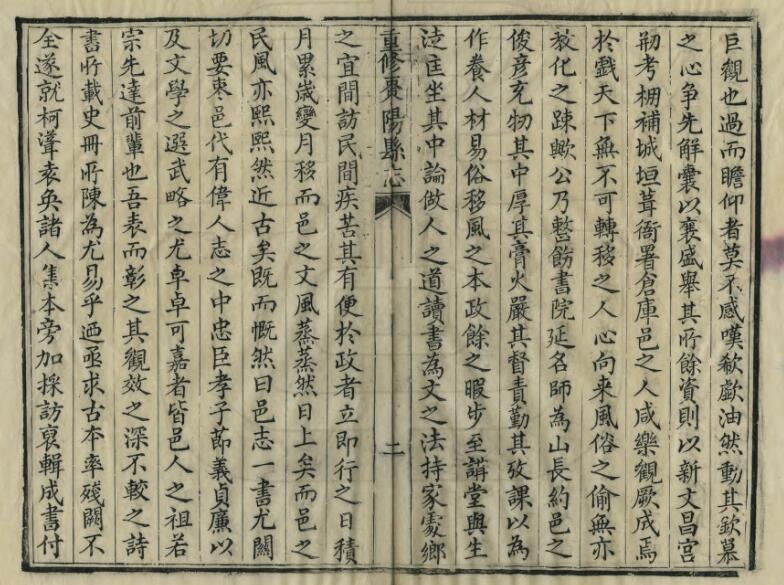 巨觀也過而瞻仰者莫不感嘆欷歔油然動其欽慕
之心爭先解囊以襄盛舉其所餘資則以新文昌宮
剏考棚補城垣葺衙署倉庫邑之人咸樂觀厥成焉
於戲天下無不可轉移之人心向来風俗之偷無亦
教化之踈歟公乃整飭書院延名師為山長約邑之
俊彦充牣其中厚其膏火嚴其督責勤其攷課以為
作養人材易俗移風之本政餘之暇步至講堂與生
徒匡坐其中論做人之道讀書為文之法持家處鄉
重修棗陽縣志
二
之宜間訪民間疾苦其有便於政者立即行之日積
月累歲變月移而邑之文風蒸蒸然日上矣而邑之
民風亦熙熙然近古矣既而慨然曰邑志一書尤關
切要棗邑代有偉人志之中忠臣孝子節義貞廉以
及文學之選武略之尤卓卓可嘉者皆邑人之祖若
宗先達前輩也吾表而彰之其觀效之深不較之詩
書所載史冊所陳為尤易乎迺亟求古本率殘闕不
全遂就柯瀣袁奐諸人集本旁加採訪裒輯成書付